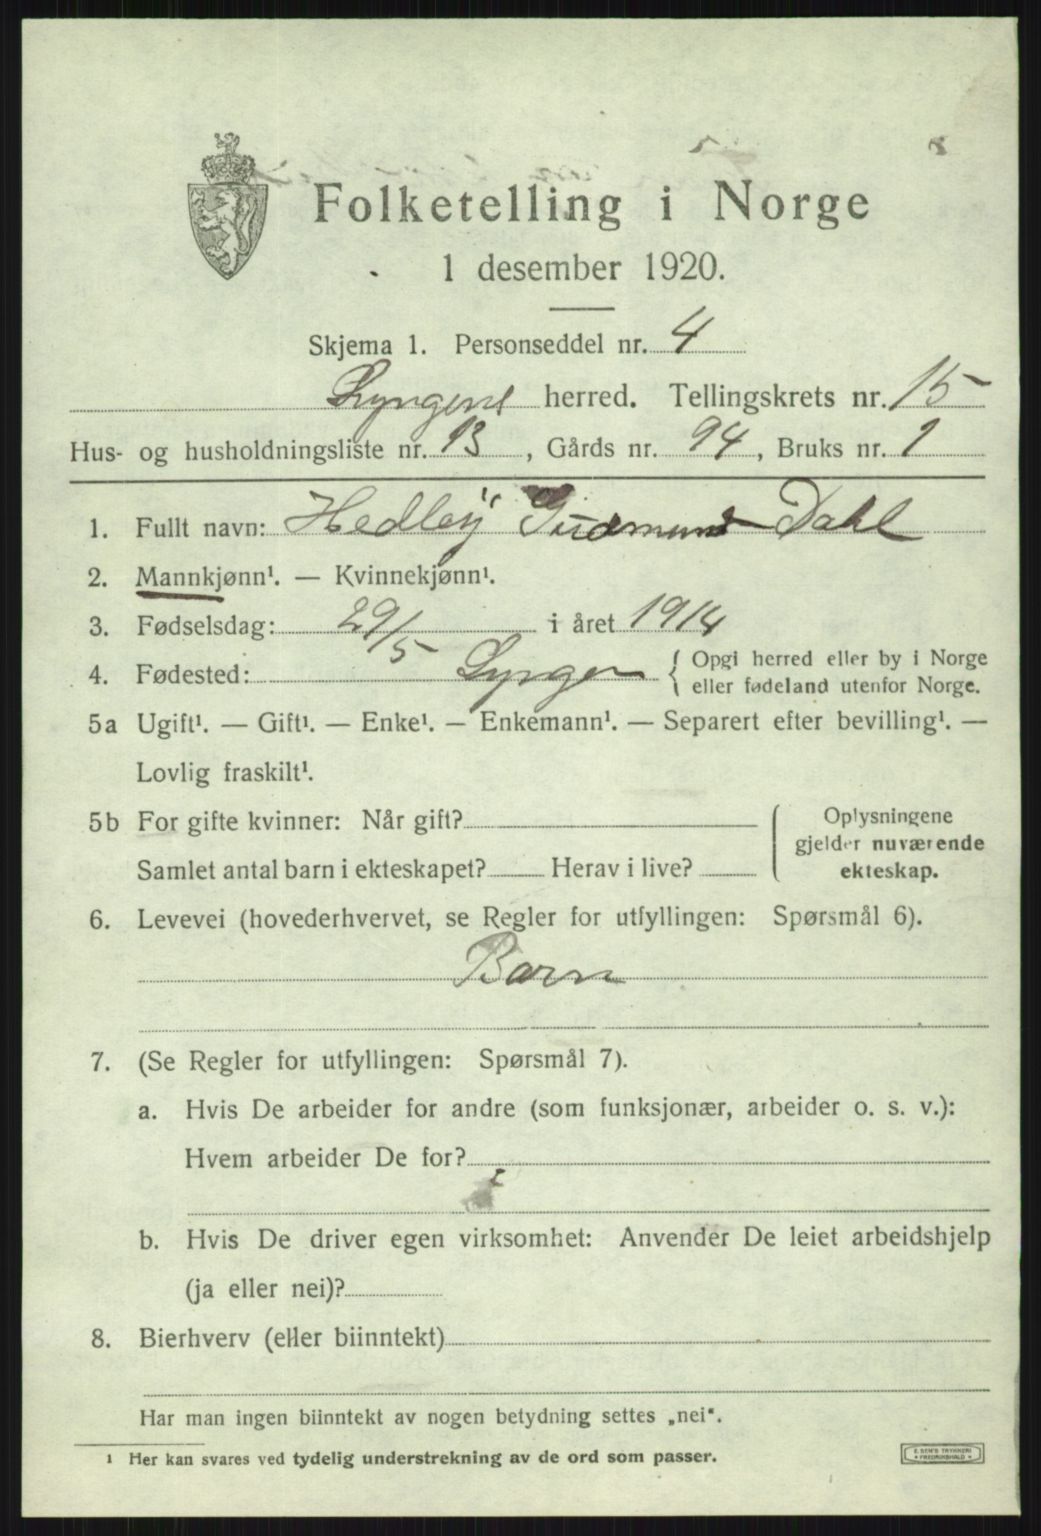 Folketelling i Norge
1 desember 1920.
Skjema 1. Personseddel nr. 4
Lyngens herred. Tellingskrets nr. 15
Hus- og husholdningsliste nr. 13, Gårds nr. 94, Bruks nr. 1
1. Fullt navn: Hedley Gudmund Dahl
2. Mannkjønn¹. — Kvinnekjønn¹.
3. Fødselsdag: 29/5 i året 1914
4. Fødested: Lyngen { Opgi herred eller by i Norge
eller fødeland utenfor Norge.
5a Ugift¹. — Gift¹. — Enke¹. — Enkemann¹. — Separert efter bevilling¹. —
Lovlig fraskilt¹.
5b For gifte kvinner: Når gift? { Oplysningene
gjelder nuværende
Samlet antal barn i ekteskapet? Herav i live? ekteskap.
6. Levevei (hovederhvervet, se Regler for utfyllingen: Spørsmål 6).
Barn
7. (Se Regler for utfyllingen: Spørsmål 7).
a. Hvis De arbeider for andre (som funksjonær, arbeider o. s. v.):
Hvem arbeider De for?
b. Hvis De driver egen virksomhet: Anvender De leiet arbeidshjelp
(ja eller nei)?
8. Bierhverv (eller biinntekt)
Har man ingen biinntekt av nogen betydning settes „nei".
¹ Her kan svares ved tydelig understrekning av de ord som passer.
E. SEM'S TRYKKERI
FREDRIKSHALD